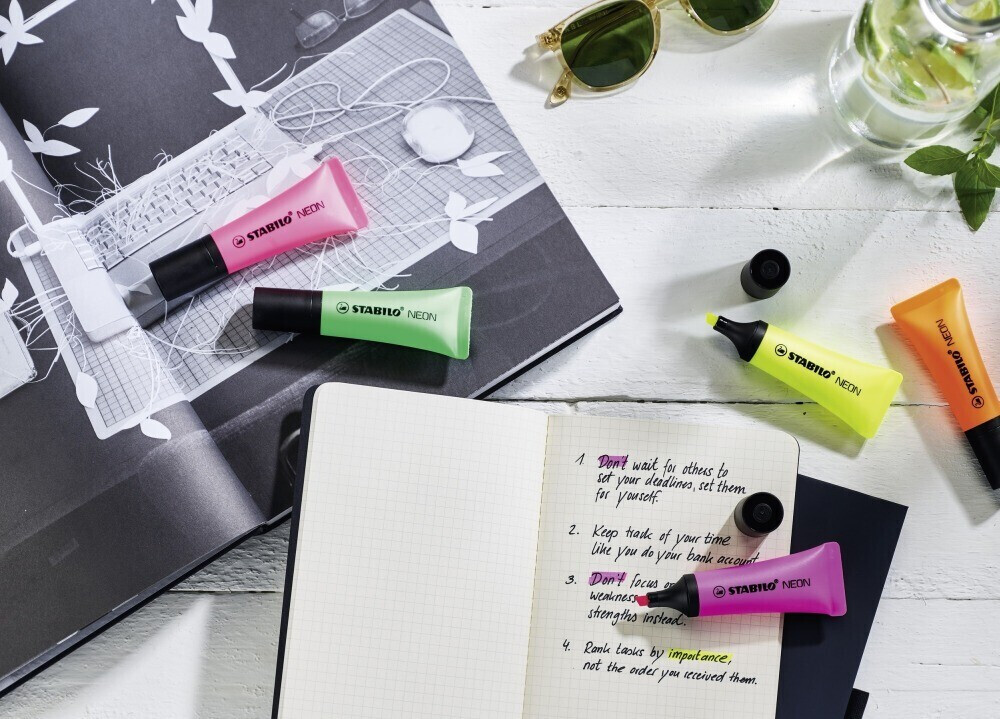 STABILO® NEON
STABILO® NEON
STABILO® NEON
STABILO® NEON
1. Don't wait for others to
set your deadlines, set them
for youself.
2. Keep track of your time
like you do your bank account
3. Don't focus on
weakness
strengths instead.
STABILO® NEON
4. Rank tasks by importance,
not the order you received them.